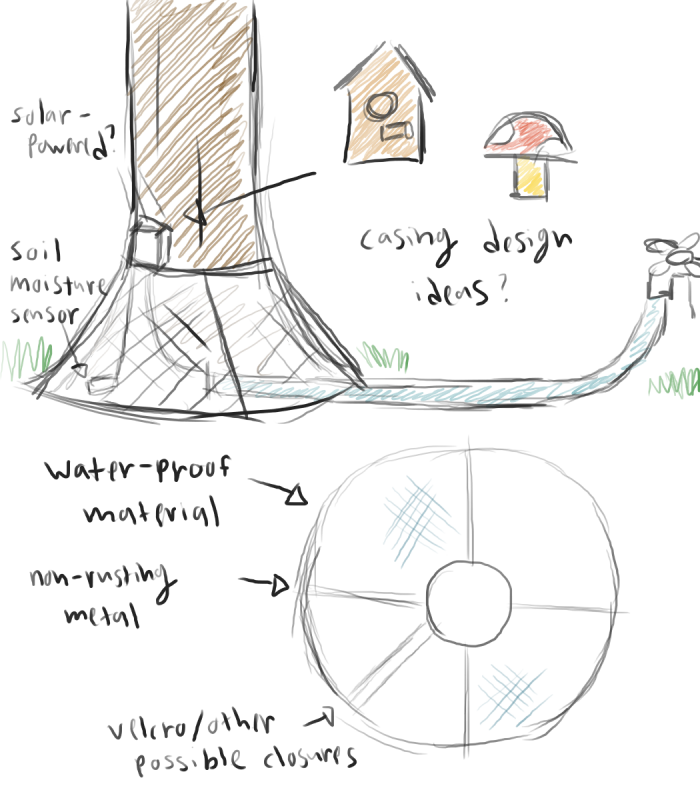 solar-
powered?
soil
moisture
sensor
casing design
ideas?
water-proof
material
non-rusting
metal
velcro/other
possible closures